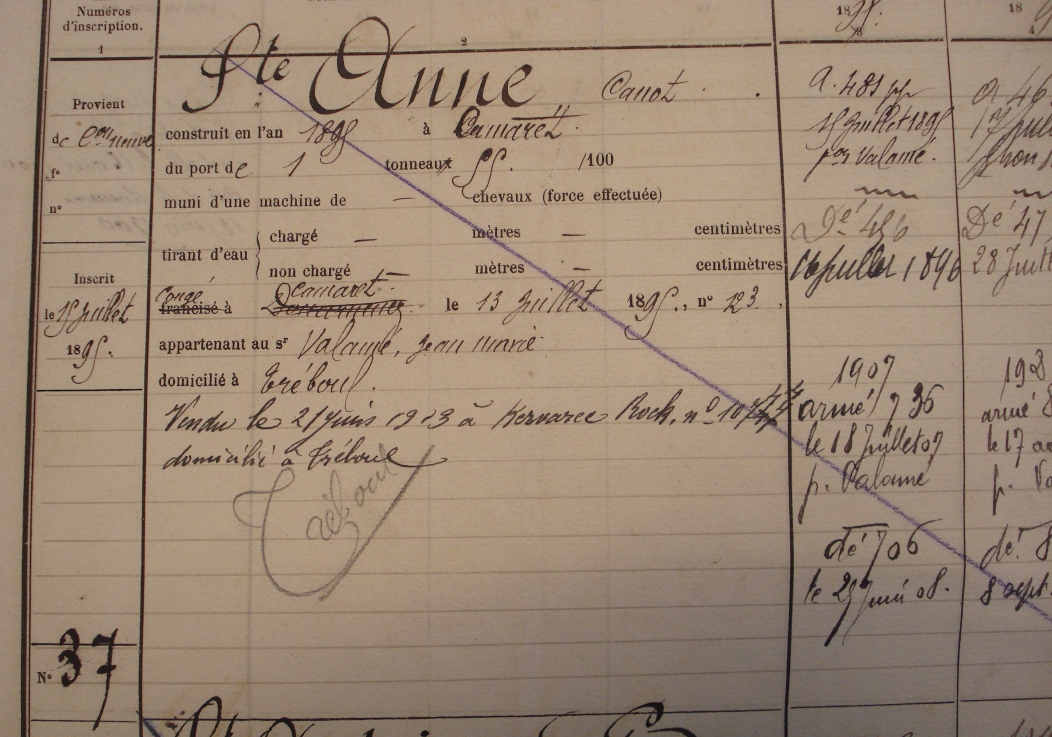 Numéros
d'inscription.
1
2
1895.
3
18
4
Ste Anne Canot.
Provient
de Cons neuve
f°
n°
construit en l'an 1895 à Camaret.
du port de 1 tonneaux 55. /100
muni d'une machine de — chevaux (force effectuée)
tirant d'eau
chargé — mètres — centimètres
non chargé — mètres — centimètres
Inscrit
le 15 Juillet
1895.
congé Camaret.
francisé à le 13 Juillet 1895., n° 23.
appartenant au sr Valamé, Jean Marie
domicilié à Tréboul.
Vendu le 21 juin 1923 à Kervarec Rock. n°
domicilié à Tréboul
Tréboul
N° 37
a. 481
15 Juillet 1895
par Valamé.
Dé 456
16 juillet 1896
1907
armé 736
le 18 Juillet 07
p. Valamé
dé 706
le 29 Juin 08.
a 46
17 Juil
Dé 47
28 Juill
armé 8
le 17 ao
p. Va
dé. 8
8 sept.